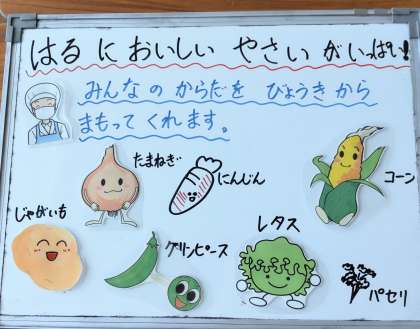 はるにおいしいやさいがいっぱい!
みんなのからだをびょうきから
まもってくれます。
たまねぎ
にんじん
コーン
じゃがいも
グリンピース
レタス
パセリ